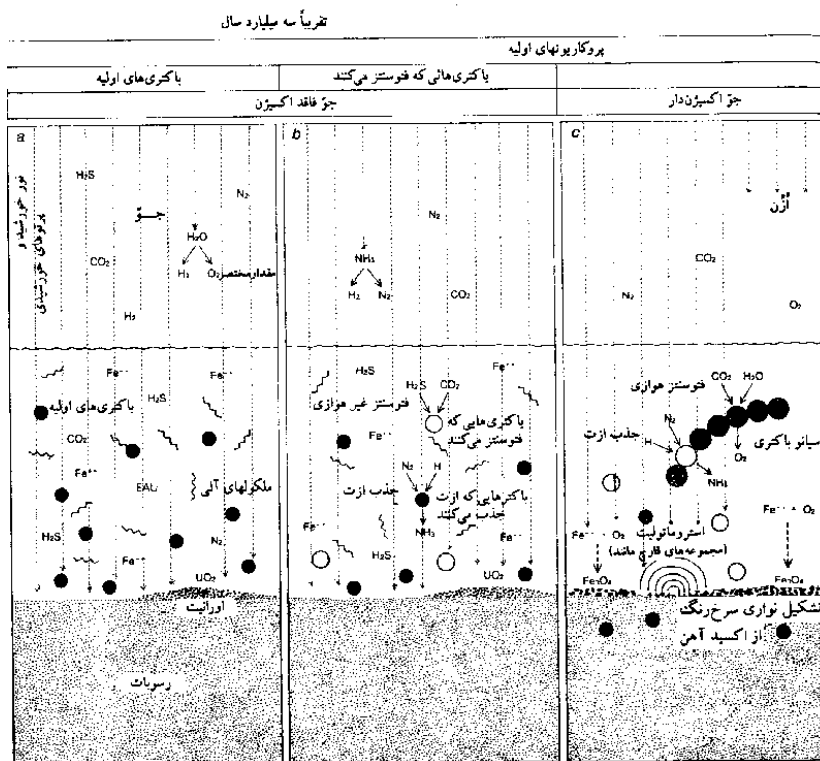 تقریباً سه میلیارد سال
پروکاریونهای اولیه
باکتری‌های اولیه
باکتری‌هائی که فتوسنتز می‌کنند
جوّ فاقد اکسیژن
جوّ اکسیژن‌دار
a
نور خورشید و
پرتوهای خورشیدی
H₂S
N₂
جــوّ
H₂O
CO₂
H₂
O₂ مقدار مختصر
H₂
Fe⁺⁺
Fe⁺⁺
H₂S
باکتری‌های اولیه
CO₂
Fe⁺⁺
ملکولهای آلی
H₂S
N₂
Fe⁺⁺
UO₂
اورانیت
رسوبات
b
N₂
NH₃
H₂
N₂
CO₂
H₂S
Fe⁺⁺
H₂S
CO₂
فتوسنتز غیر هوازی
باکتری‌هایی که
فتوسنتز می‌کنند
Fe⁺⁺
N₂
H
جذب ازت
باکترهایی که ازت
جذب می‌کنند
Fe⁺⁺
NH₃
H₂S
UO₂
c
اُزُن
CO₂
N₂
O₂
CO₂
H₂O
فتوسنتز هوازی
N₂
سیانو باکتری
جذب ازت
H
O₂
NH₃
Fe⁺⁺
O₂
Fe⁺⁺
O₂
استروماتولیت
(مجموعه‌های قارچ مانند)
Fe₃O₄
Fe₃O₄
تشکیل نواری سرخ‌رنگ
از اکسید آهن